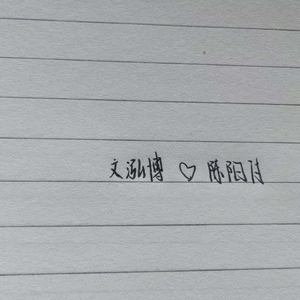 文泓博 ♡ 陈阳月